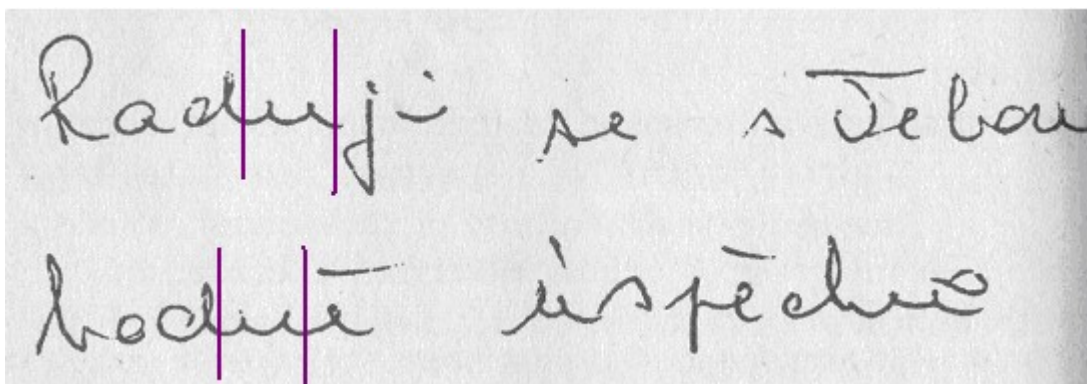 Raduji se s Tebou
hodně úspěchů